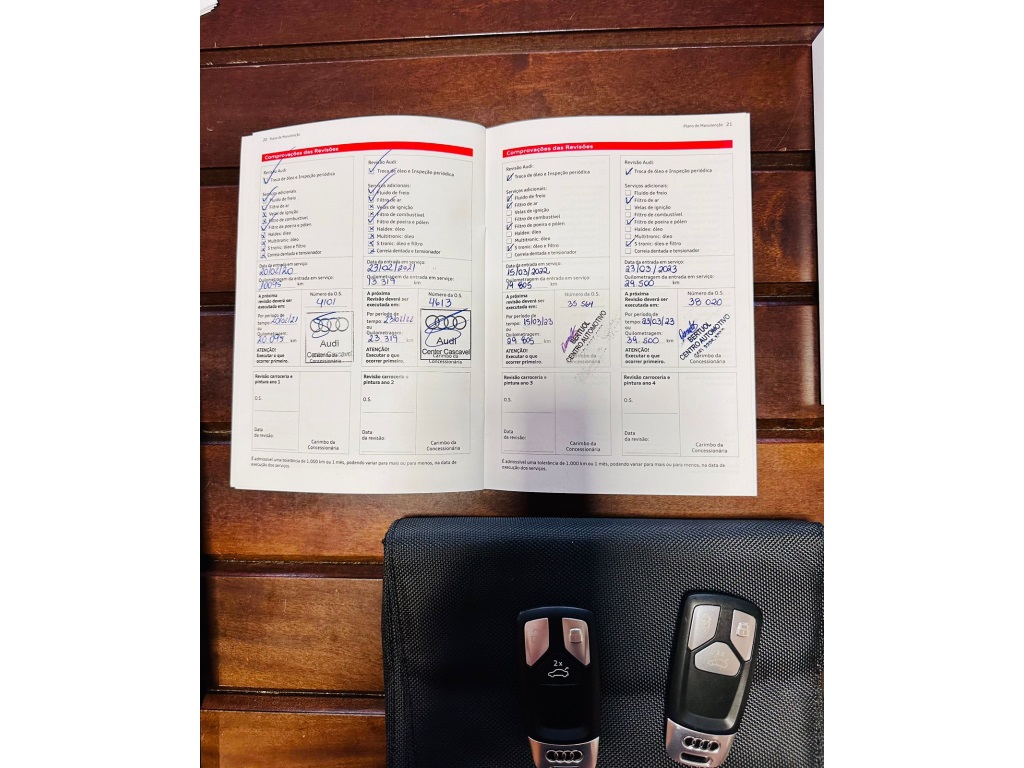 20 Plano de Manutenção
Comprovações das Revisões
Revisão Audi:
Troca de óleo e Inspeção periódica
Serviços adicionais:
Fluido de freio
Filtro de ar
Velas de ignição
Filtro de combustível
Filtro de poeira e pólen
Haldex: óleo
Multitronic: óleo
S tronic: óleo e filtro
Correia dentada e tensionador
Data da entrada em serviço:
20/02/20
Quilometragem da entrada em serviço:
10095 km
A próxima
Revisão deverá ser
executada em:
Número da O.S.
4101
Por período de
tempo: 20/02/21
ou
Quilometragem:
20.095 km
ATENÇÃO!
Executar o que
ocorrer primeiro.
Audi
Center Cascavel
Revisão carroceria e
pintura ano 1
O.S.
Data
da revisão:
Carimbo da
Concessionária
Revisão Audi:
Troca de óleo e Inspeção periódica
Serviços adicionais:
Fluido de freio
Filtro de ar
Velas de ignição
Filtro de combustível
Filtro de poeira e pólen
Haldex: óleo
Multitronic: óleo
S tronic: óleo e filtro
Correia dentada e tensionador
Data da entrada em serviço:
23/02/2021
Quilometragem da entrada em serviço:
13.319 km
A próxima
Revisão deverá ser
executada em:
Número da O.S.
4613
Por período de
tempo: 23/02/22
ou
Quilometragem:
23.319 km
ATENÇÃO!
Executar o que
ocorrer primeiro.
Audi
Center Cascavel
Carimbo da
Concessionária
Revisão carroceria e
pintura ano 2
O.S.
Data
da revisão:
Carimbo da
Concessionária
É admissível uma tolerância de 1.000 km ou 1 mês, podendo variar para mais ou para menos, na data de
execução dos serviços.
Plano de Manutenção 21
Comprovações das Revisões
Revisão Audi:
Troca de óleo e Inspeção periódica
Serviços adicionais:
Fluido de freio
Filtro de ar
Velas de ignição
Filtro de combustível
Filtro de poeira e pólen
Haldex: óleo
Multitronic: óleo
S tronic: óleo e filtro
Correia dentada e tensionador
Data da entrada em serviço:
15/03/2022
Quilometragem da entrada em serviço:
19.805 km
A próxima
Revisão deverá ser
executada em:
Número da O.S.
35 564
Por período de
tempo: 15/03/23
ou
Quilometragem:
29.805 km
ATENÇÃO!
Executar o que
ocorrer primeiro.
BERTUOL
CENTRO AUTOMOTIVO
Concessionária
Revisão carroceria e
pintura ano 3
O.S.
Data
da revisão:
Carimbo da
Concessionária
Revisão Audi:
Troca de óleo e Inspeção periódica
Serviços adicionais:
Fluido de freio
Filtro de ar
Velas de ignição
Filtro de combustível
Filtro de poeira e pólen
Haldex: óleo
Multitronic: óleo
S tronic: óleo e filtro
Correia dentada e tensionador
Data da entrada em serviço:
23/03/2023
Quilometragem da entrada em serviço:
29.500 km
A próxima
Revisão deverá ser
executada em:
Número da O.S.
38 020
Por período de
tempo: 23/03/23
ou
Quilometragem:
39.500 km
ATENÇÃO!
Executar o que
ocorrer primeiro.
BERTUOL
CENTRO AUTOMOTIVO
Concessionária
Revisão carroceria e
pintura ano 4
O.S.
Data
da revisão:
Carimbo da
Concessionária
É admissível uma tolerância de 1.000 km ou 1 mês, podendo variar para mais ou para menos, na data de
execução dos serviços.
2x